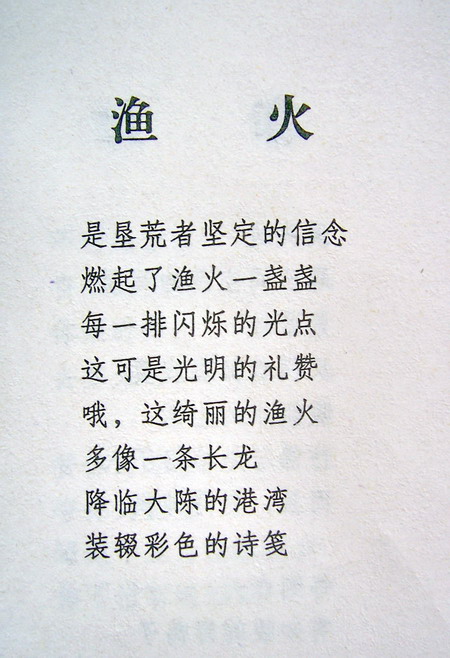 渔 火
是垦荒者坚定的信念
燃起了渔火一盏盏
每一排闪烁的光点
这可是光明的礼赞
哦，这绮丽的渔火
多像一条长龙
降临大陈的港湾
装辍彩色的诗笺